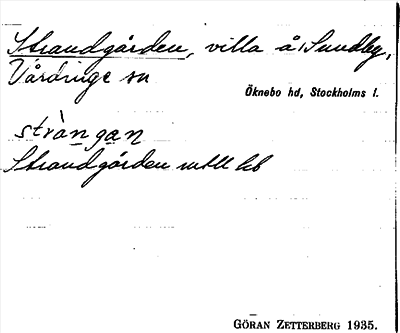 Strandgården, villa å 1 Sundby,
Vårdinge sn
Öknebo hd, Stockholms l.
stràngan
Strandgården mtll lb
GÖRAN ZETTERBERG 1935.